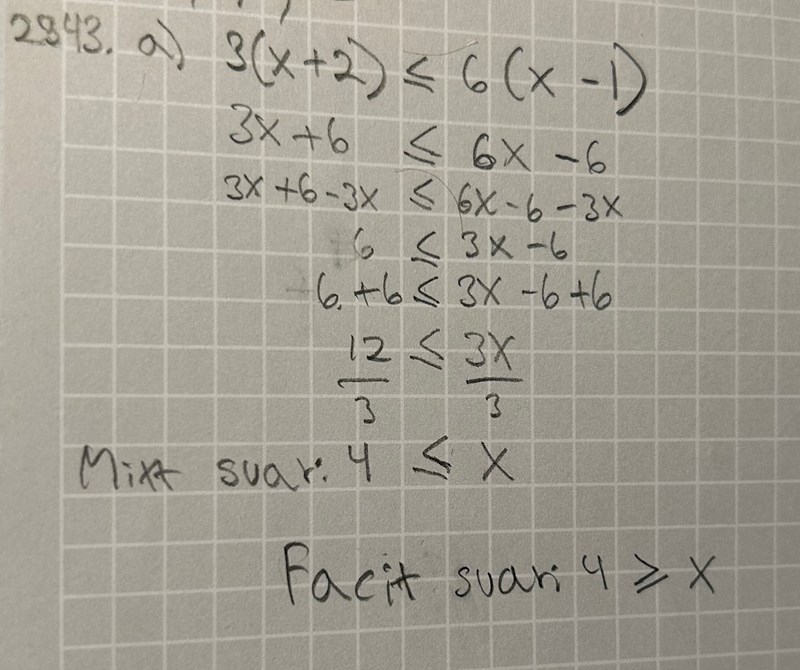 2843. a) 3(x+2) ≤ 6(x-1)
3x+6 ≤ 6x-6
3x+6-3x ≤ 6x-6-3x
6 ≤ 3x-6
6+6 ≤ 3x-6+6
12/3 ≤ 3x/3
Mitt svar: 4 ≤ x
Facit svar: 4 ≥ x